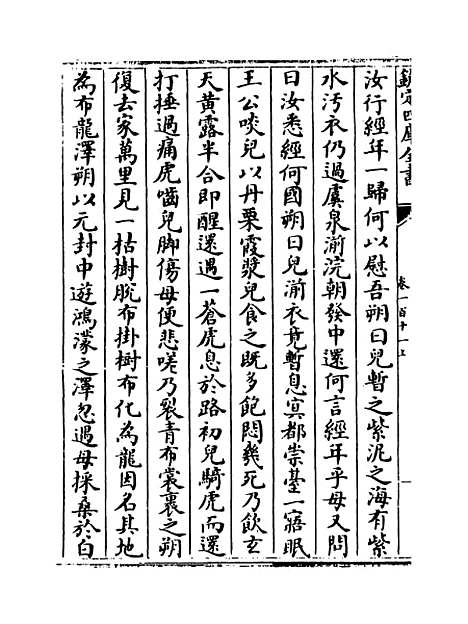 欽定四庫全書
卷一百十一上
汝行經年一歸何以慰吾朔曰兒暫之紫泥之海有紫
水汚衣仍過虞泉湔浣朝發中還何言經年乎母又問
曰汝悉經何國朔曰兒湔衣竟暫息冥都崇臺一寤眠
王公啖兒以丹栗霞漿兒食之既多飽悶幾死乃飲玄
天黄露半合即醒還遇一蒼虎息於路初兒騎虎而還
打捶過痛虎嚙兒脚傷母便悲嗟乃裂青布裳裹之朔
復去家萬里見一枯樹脱布掛樹布化為龍因名其地
為布龍澤朔以元封中遊鴻濛之澤忽遇母採桑於白